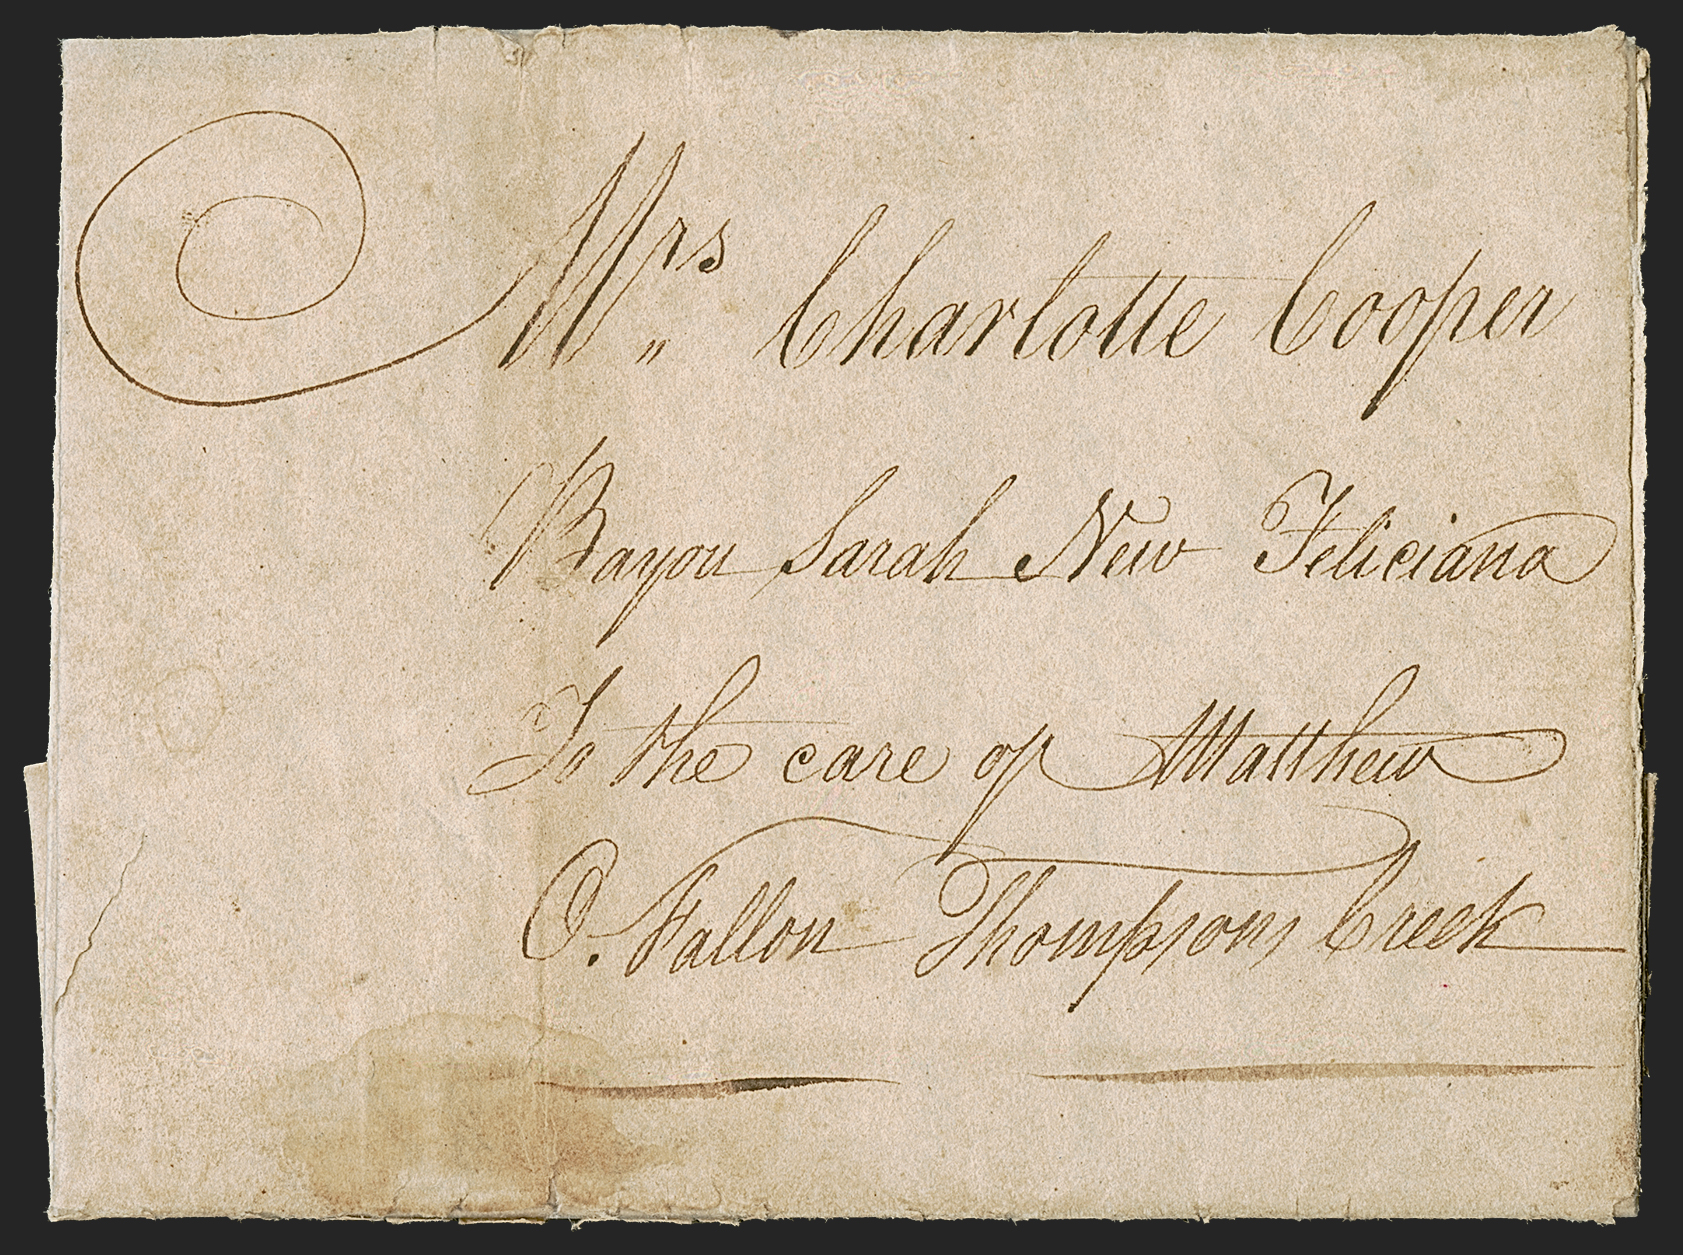 Mrs„ Charlotte Cooper
Bayou Sarah New Feliciana
To the care of Matthew
O. Fallon Thompsons Creek